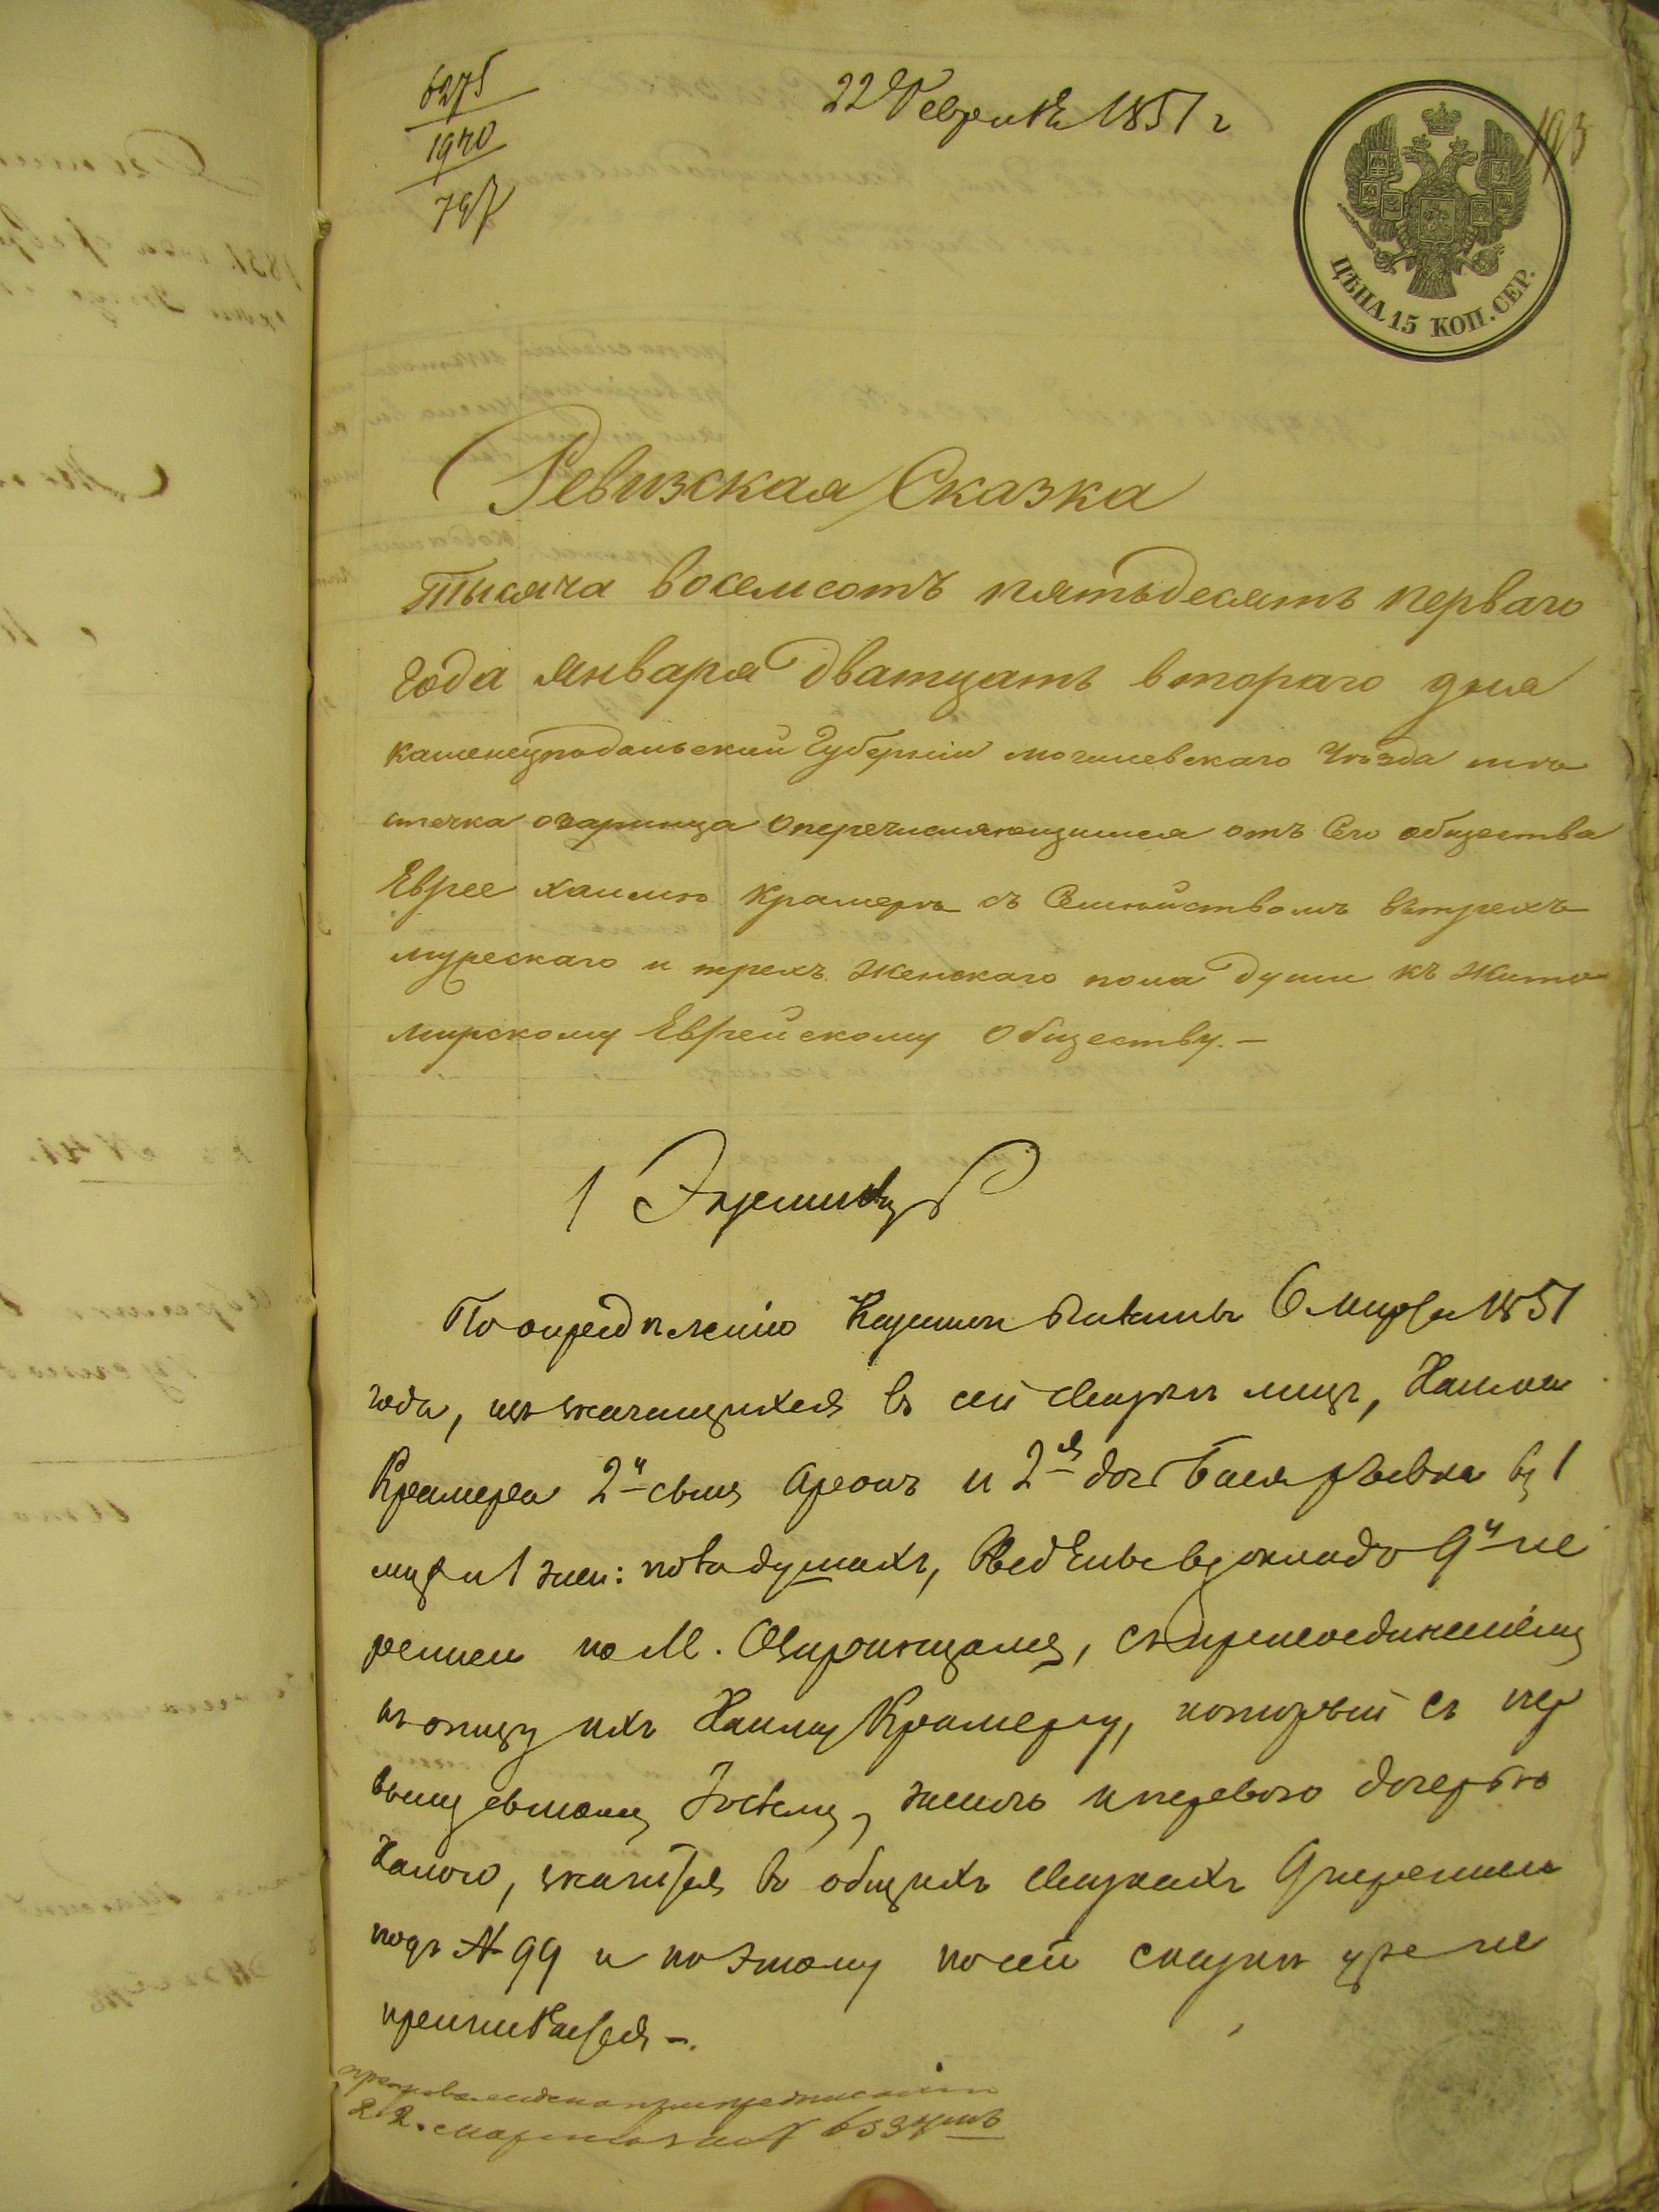 6275
1970
797
22 Февраля 1851 г
193
ЦѢНА 15 КОП. СЕР.
Ревизская Сказка
Тысяча восемсотъ пятьдесятъ перваго
года января дватцать втораго дня
Каменецподольской Губерніи могилевскаго Уѣзда мѣ
стечка озаринца о перечисляющимся отъ Сего общества
Еврее хаимѣ Крамерѣ съ Семействомъ въ трехъ
мужескаго и трехъ женскаго пола души къ Жито
мирскому Еврейскому Обществу. —
1 Экземпляръ
По опредѣленію Казенной Палаты 6 Марта 1851
года, изъ значащихся въ сей сказкѣ лицъ, Хаима
Крамера 2й сынъ Аронъ и 2я дочь Бася Ривка въ 1
муж и 1 жен: пола душахъ, введены въ окладъ 9й ре
визіи по М. Озаринцамъ, съ присоединеніемъ
къ отцу ихъ Хаиму Крамеру, который съ пер
вымъ сыномъ женою и первою дочерью
Хаимо, значатся въ общихъ сказкахъ 9 ревизіи
подъ № 99 и поэтому по сей сказкѣ уже не
причисляется —.
22. марта за №